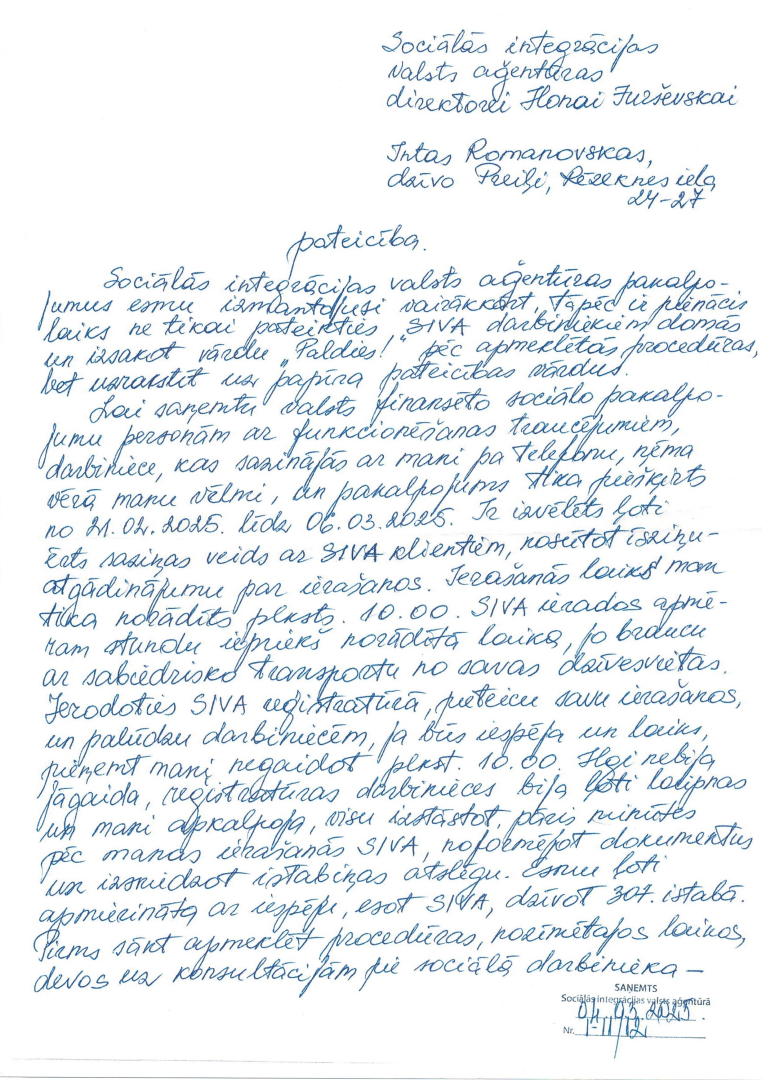 Sociālās integrācijas
valsts aģentūras
direktorei Ilonai Jurševskai
Intas Romanovskas,
dzīvo Preiļi, Rēzeknes iela
24-27
pateicība.
Sociālās integrācijas valsts aģentūras pakalpo-
jumus esmu izmantojusi vairākkārt, tāpēc ir pienācis
laiks ne tikai pateikties SIVA darbiniekiem domās
un izsakot vārdu "Paldies!" pēc apmeklētās procedūras,
bet uzrakstīt uz papīra pateicības vārdus.
Lai saņemtu valsts finansēto sociālo pakalpo-
jumu personām ar funkcionēšanas traucējumiem,
darbiniece, kas sazinājās ar mani pa telefonu, ņēma
vērā manu vēlmi, un pakalpojums tika piešķirts
no 21.02.2025. līdz 06.03.2025. Ir izvēlēts ļoti
ērts saziņas veids ar SIVA klientiem, nosūtot īsziņu-
atgādinājumu par ierašanos. Ierašanās laiks man
tika norādīts plksts. 10.00. SIVA ierados apmē-
ram stundu iepriekš norādītā laika, jo braucu
ar sabiedrisko transportu no savas dzīvesvietas.
Ierodoties SIVA reģistratūrā, pieteicu savu ierašanos,
un palūdzu darbiniecēm, ja būs iespēja un laiks,
pieņemt mani negaidot plkst. 10.00. Ilgi nebija
jāgaida, reģistratūras darbinieces bija ļoti laipnas
un mani apkalpoja, visu izstāstot, pāris minūtēs
pēc manas ierašanās SIVA, noformējot dokumentus
un izsniedzot istabiņas atslēgu. Esmu ļoti
apmierināta ar iespēju, esot SIVA, dzīvot 307. istabā.
Pirms sākt apmeklēt procedūras, nozīmētajos laikos,
devos uz konsultācijām pie sociālā darbinieka –
SAŅEMTS
Sociālās integrācijas valsts aģentūrā
04.03.2025.
Nr. 1-11/12